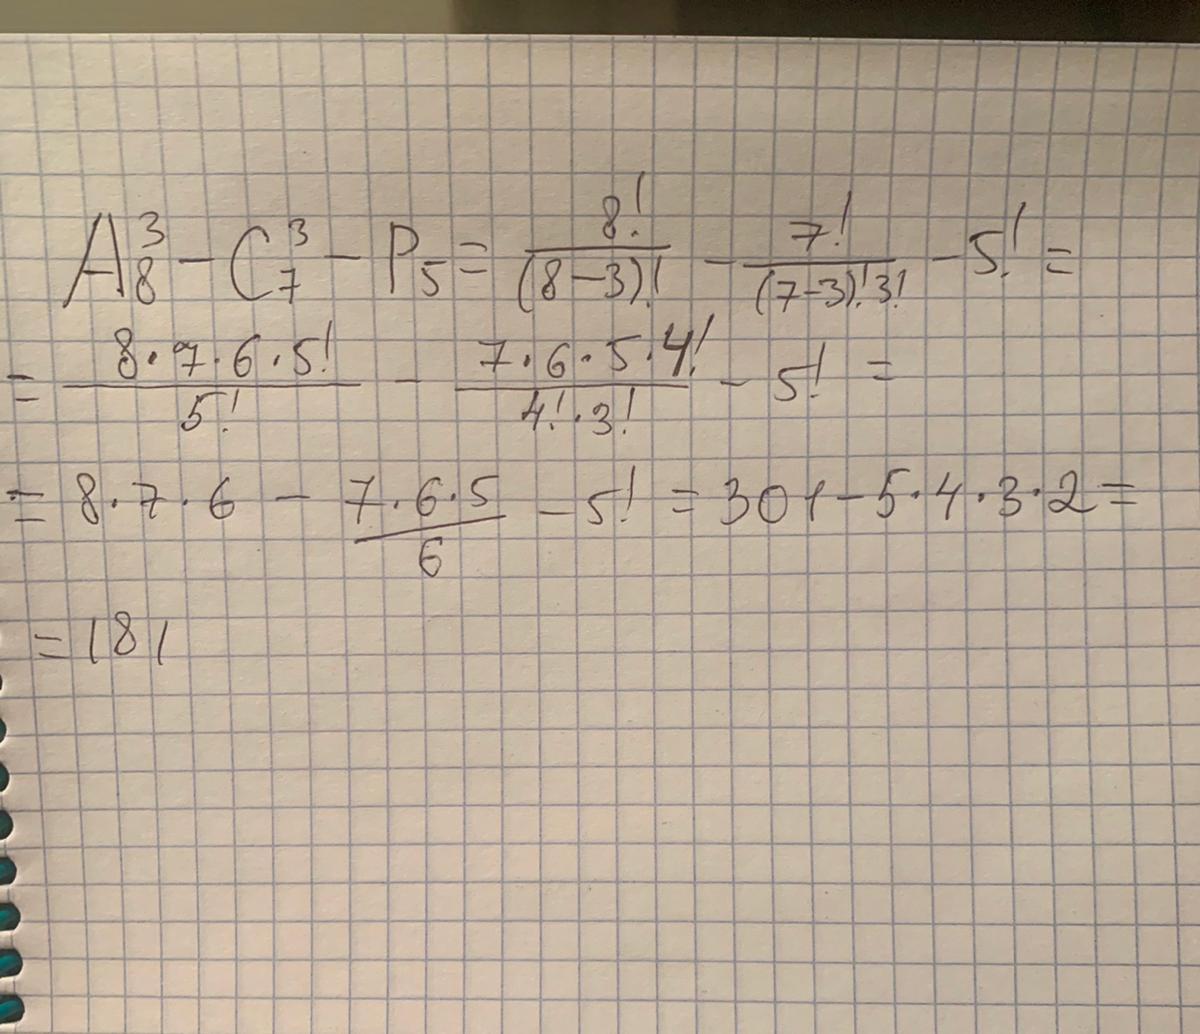 A₈³ − C₇³ − P₅ = 8!/(8−3)! − 7!/((7−3)!3!) − 5! =
= 8·7·6·5!/5! − 7·6·5·4!/(4!·3!) − 5! =
= 8·7·6 − 7·6·5/6 − 5! = 301 − 5·4·3·2 =
= 181